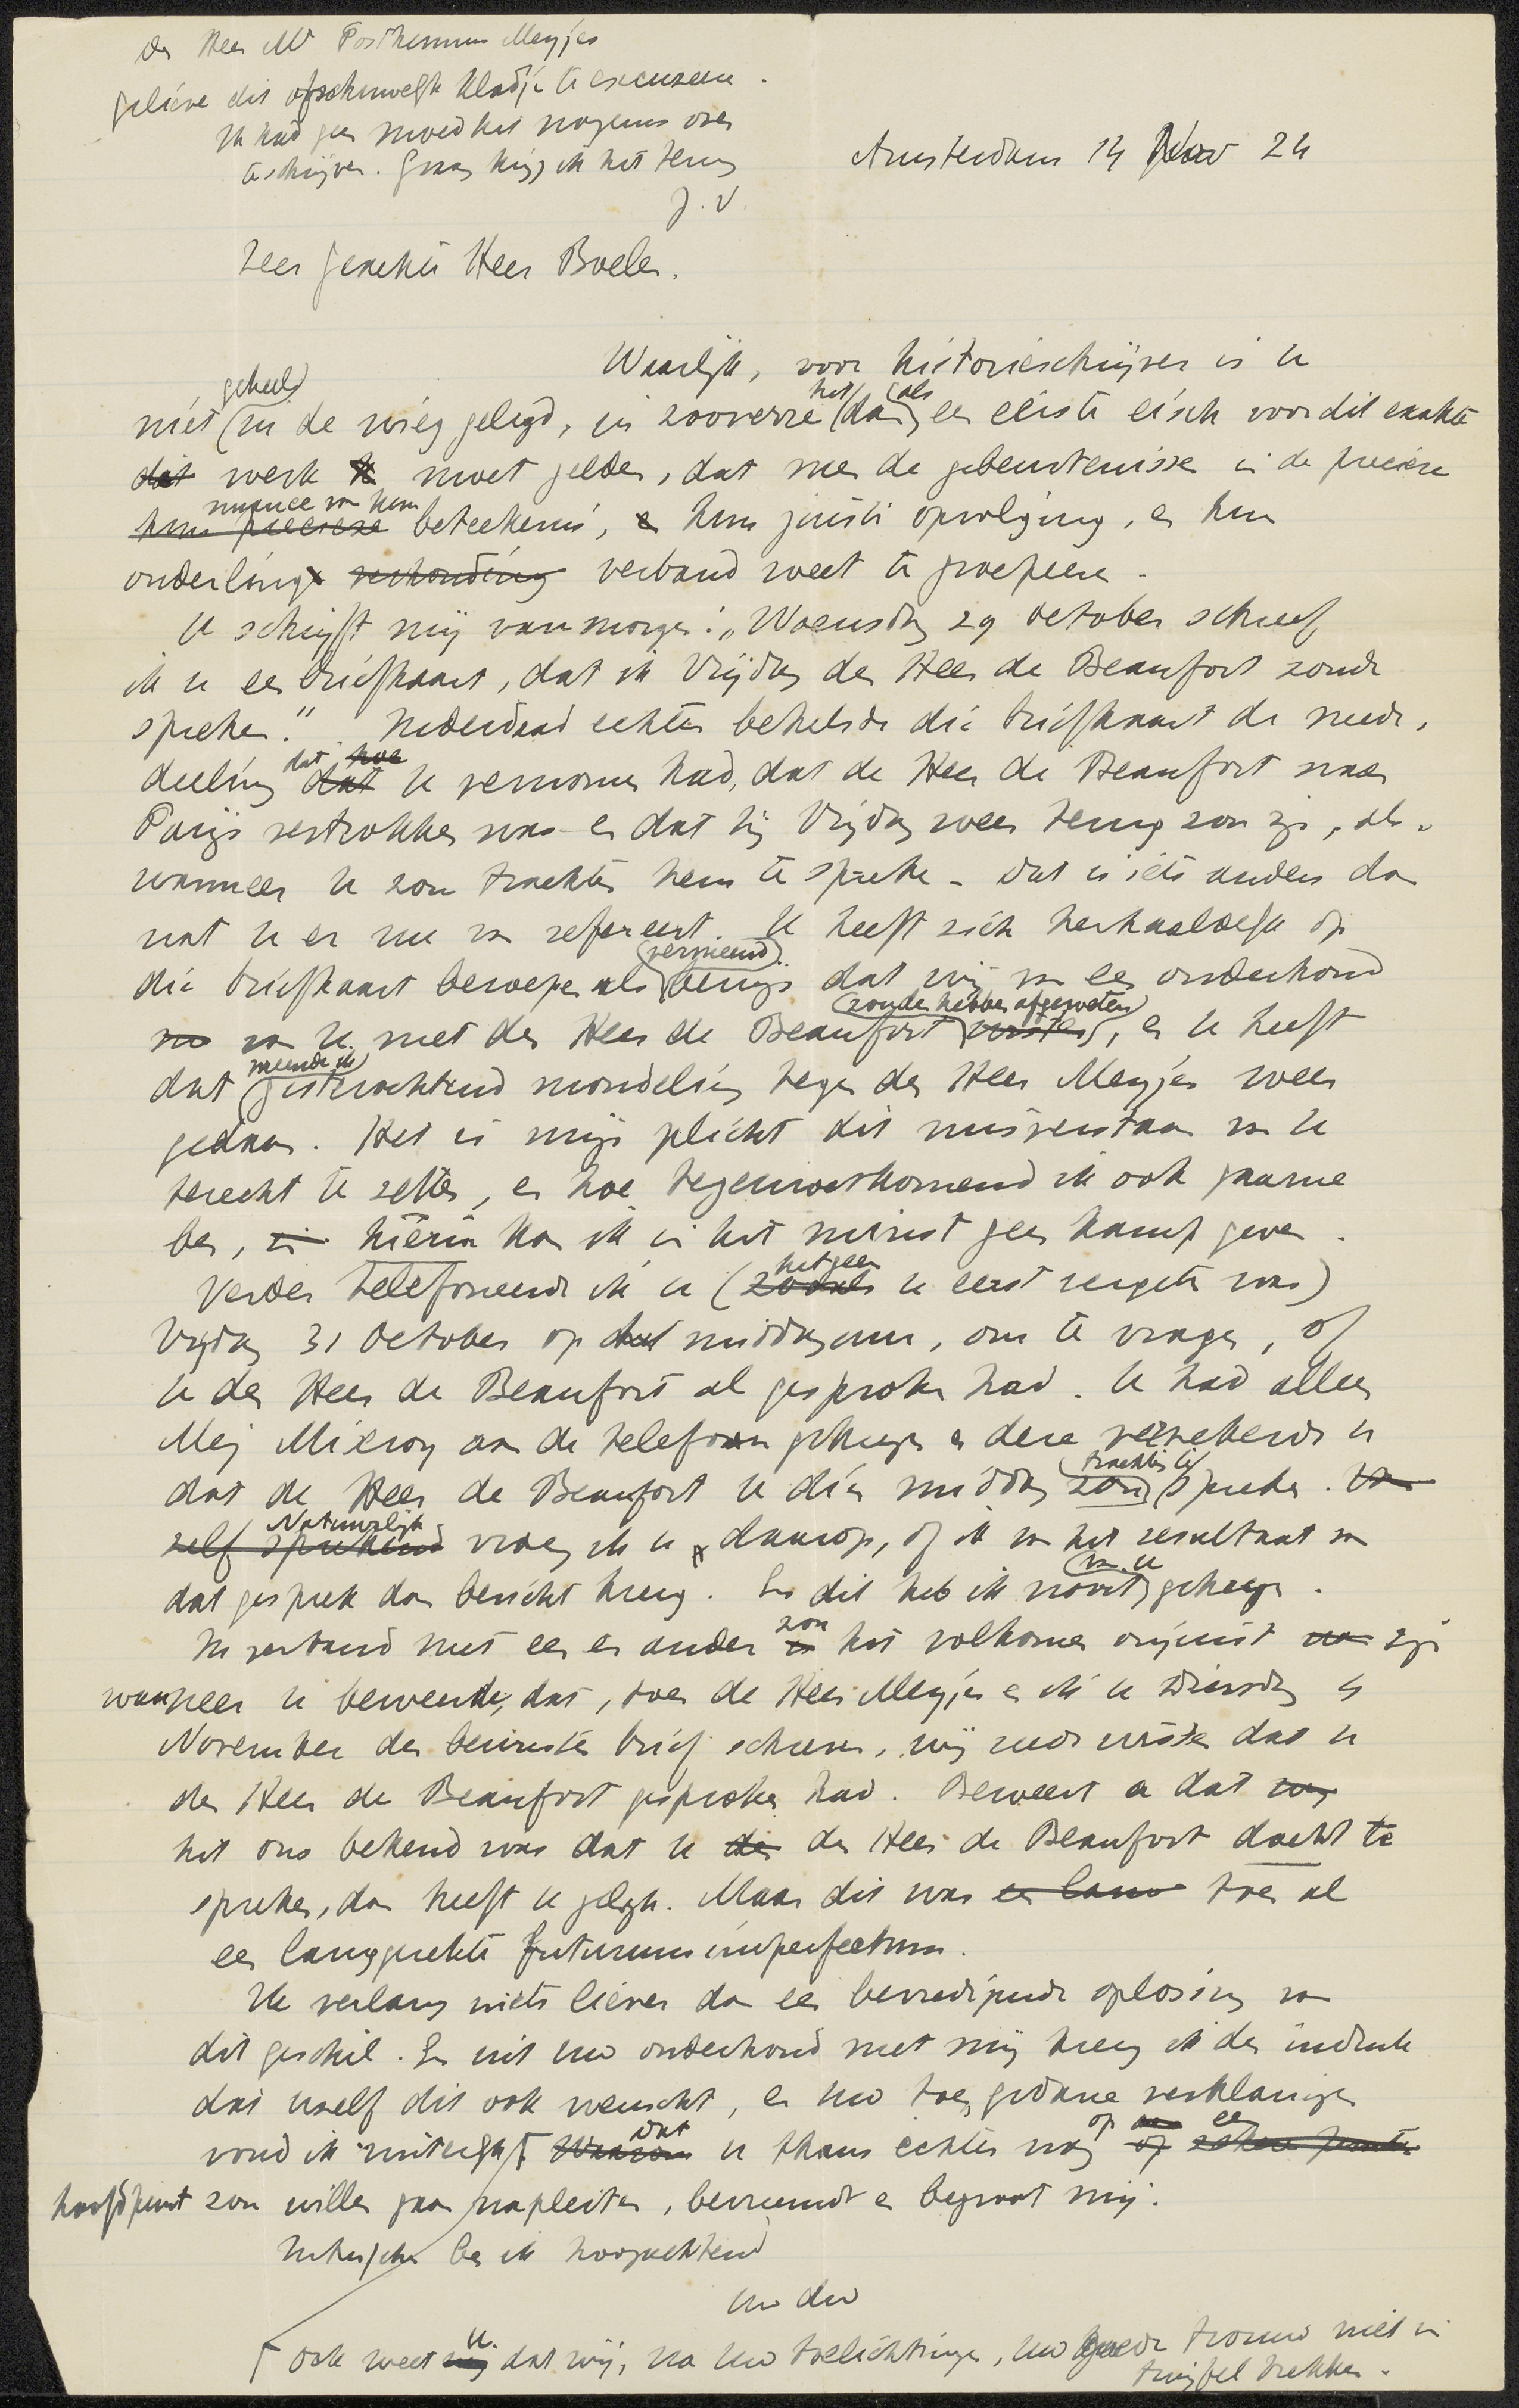 Den Heer Mr Posthumus Meyjes
gelieve dit afschuwelijk kladje te excuseeren.
Ik had geen moed het nogeens over
te schrijven. Graag krijg ik het terug
J.V.
Amsterdam 14 Nov 24
Zeer geachte Heer Boelen.
Waarlijk, voor historieschrijver is U
niet geheel in de wieg gelegd, in zooverre het dan als een eerste eisch voor dit exakte
dat werk moet gelden, dat men de gebeurtenissen in de precieze
hun precieze nuance van hun beteekenis, hun juiste opvolging, en hun
onderling verhouding verband weet te groepeeren.
U schrijft mij vanmorgen: „Woensdag 29 October schreef
ik u een briefkaart, dat ik Vrijdag den Heer de Beaufort zoude
spreken." Inderdaad echter behelsde die briefkaart de mede-
deeling dat hoe dat U vernomen had, dat de Heer de Beaufort naar
Parijs vertrokken was en dat hij Vrijdag weer terug zou zijn, al-
wanneer U zou trachten hem te spreken. Dat is iets anders dan
wat U er nu van refereert. U heeft zich herhaaldelijk op
die briefkaart beroepen als (vermeend) bewijs dat wij van een onderhoud
van U met den Heer de Beaufort wisten zouden hebben afgeweten, en U heeft
dat meende ik gisterochtend mondeling tegen den Heer Meyjes weer
gedaan. Het is mijn plicht dit misverstaan van U
terecht te zetten, en hoe tegemoetkomend ik ook gaarne
ben, hierin kan ik in het minst geen kamp geven.
Verder telefoneerde ik U (zooals hetgeen U eerst vergeten was)
Vrijdag 31 October op het middaguur, om te vragen, of
U den Heer de Beaufort al gesproken had. U had alleen
Mej Mixeroy aan de telefoon gekregen en deze verzekerde U
dat de Heer de Beaufort U dien middag zou trachten te spreken. Van
zelf sprekend Natuurlijk vroeg ik U daarop, of ik van het resultaat van
dat gesprek dan bericht kreeg. En dit heb ik nooit van U gekregen.
In verband met een en ander is zou het volkomen onjuist zijn
wanneer U beweerde, dat, toen de Heer Meyjes en ik U Dinsdag 4
November den bewusten brief schreven, wij reeds wisten dat U
den Heer de Beaufort gesproken had. Beweert U dat wij
het ons bekend was dat U den Heer de Beaufort dacht te
spreken, dan heeft U gelijk. Maar dit was een lang toen al
een langgerekte futurum imperfectum.
Ik verlang niets liever dan een bevredigende oplossing van
dit geschil. En uit Uw onderhoud met mij kreeg ik den indruk
dat Uzelf dit ook wenscht, en Uw toen gedane verklaringen
vond ik uiterlijk Waarom Dat U thans echter nog op een
hoofdpunt zou willen gaan napleiten, bevreemdt en begroot mij.
Intusschen ben ik hoogachtend
Uw dw
Ook weet U dat wij, na Uw toelichtingen, Uw goede trouw niet in
twijfel trekken.